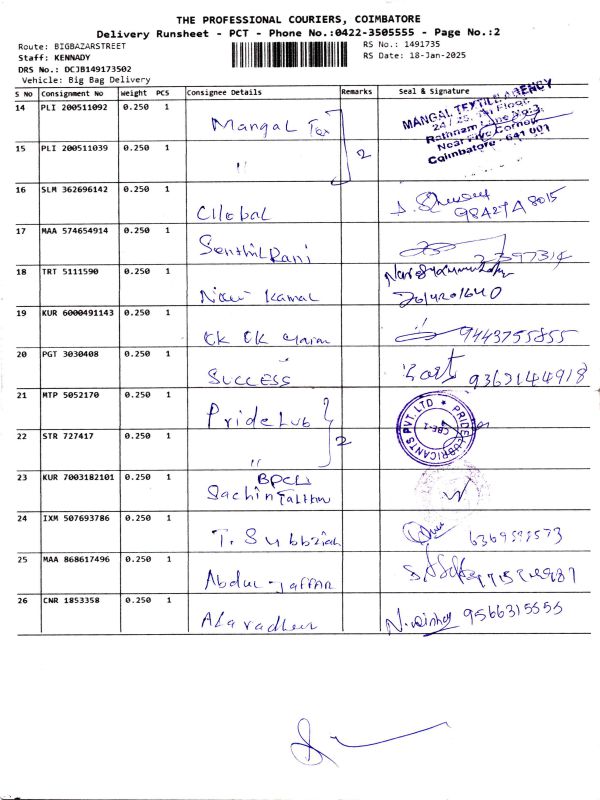 THE PROFESSIONAL COURIERS, COIMBATORE
Delivery Runsheet - PCT - Phone No.:0422-3505555 - Page No.:2
Route: BIGBAZARSTREET RS No.: 1491735
Staff: KENNADY RS Date: 18-Jan-2025
DRS No.: DCJB149173502
Vehicle: Big Bag Delivery
S NO Consignment No Weight PCS Consignee Details Remarks Seal & Signature
14 PLI 200511092 0.250 1 Mangal Tex
MANGAL TEXTILE AGENCY
24 / 25, Floor
Rathnam Lane No.3
Near Five Corner
Coimbatore - 641 001
15 PLI 200511039 0.250 1 " 2
16 SLM 362696142 0.250 1 Cllobal
17 MAA 574654914 0.250 1 Senthil Rani
18 TRT 5111590 0.250 1 Kamal
19 KUR 6000491143 0.250 1 OK OK 9443755855
20 PGT 3030408 0.250 1 SUCCESS 9362144918
21 MTP 5052170 0.250 1 Pride Lub
PRIDE LUBRICANTS PVT.LTD ★ CBE-1
22 STR 727417 0.250 1 " 2
23 KUR 7003182101 0.250 1 BPCL
Sachin
24 IXM 507693786 0.250 1 T. Subbziah
25 MAA 868617496 0.250 1 Abdul-jaffar
26 CNR 1853358 0.250 1 9566315555